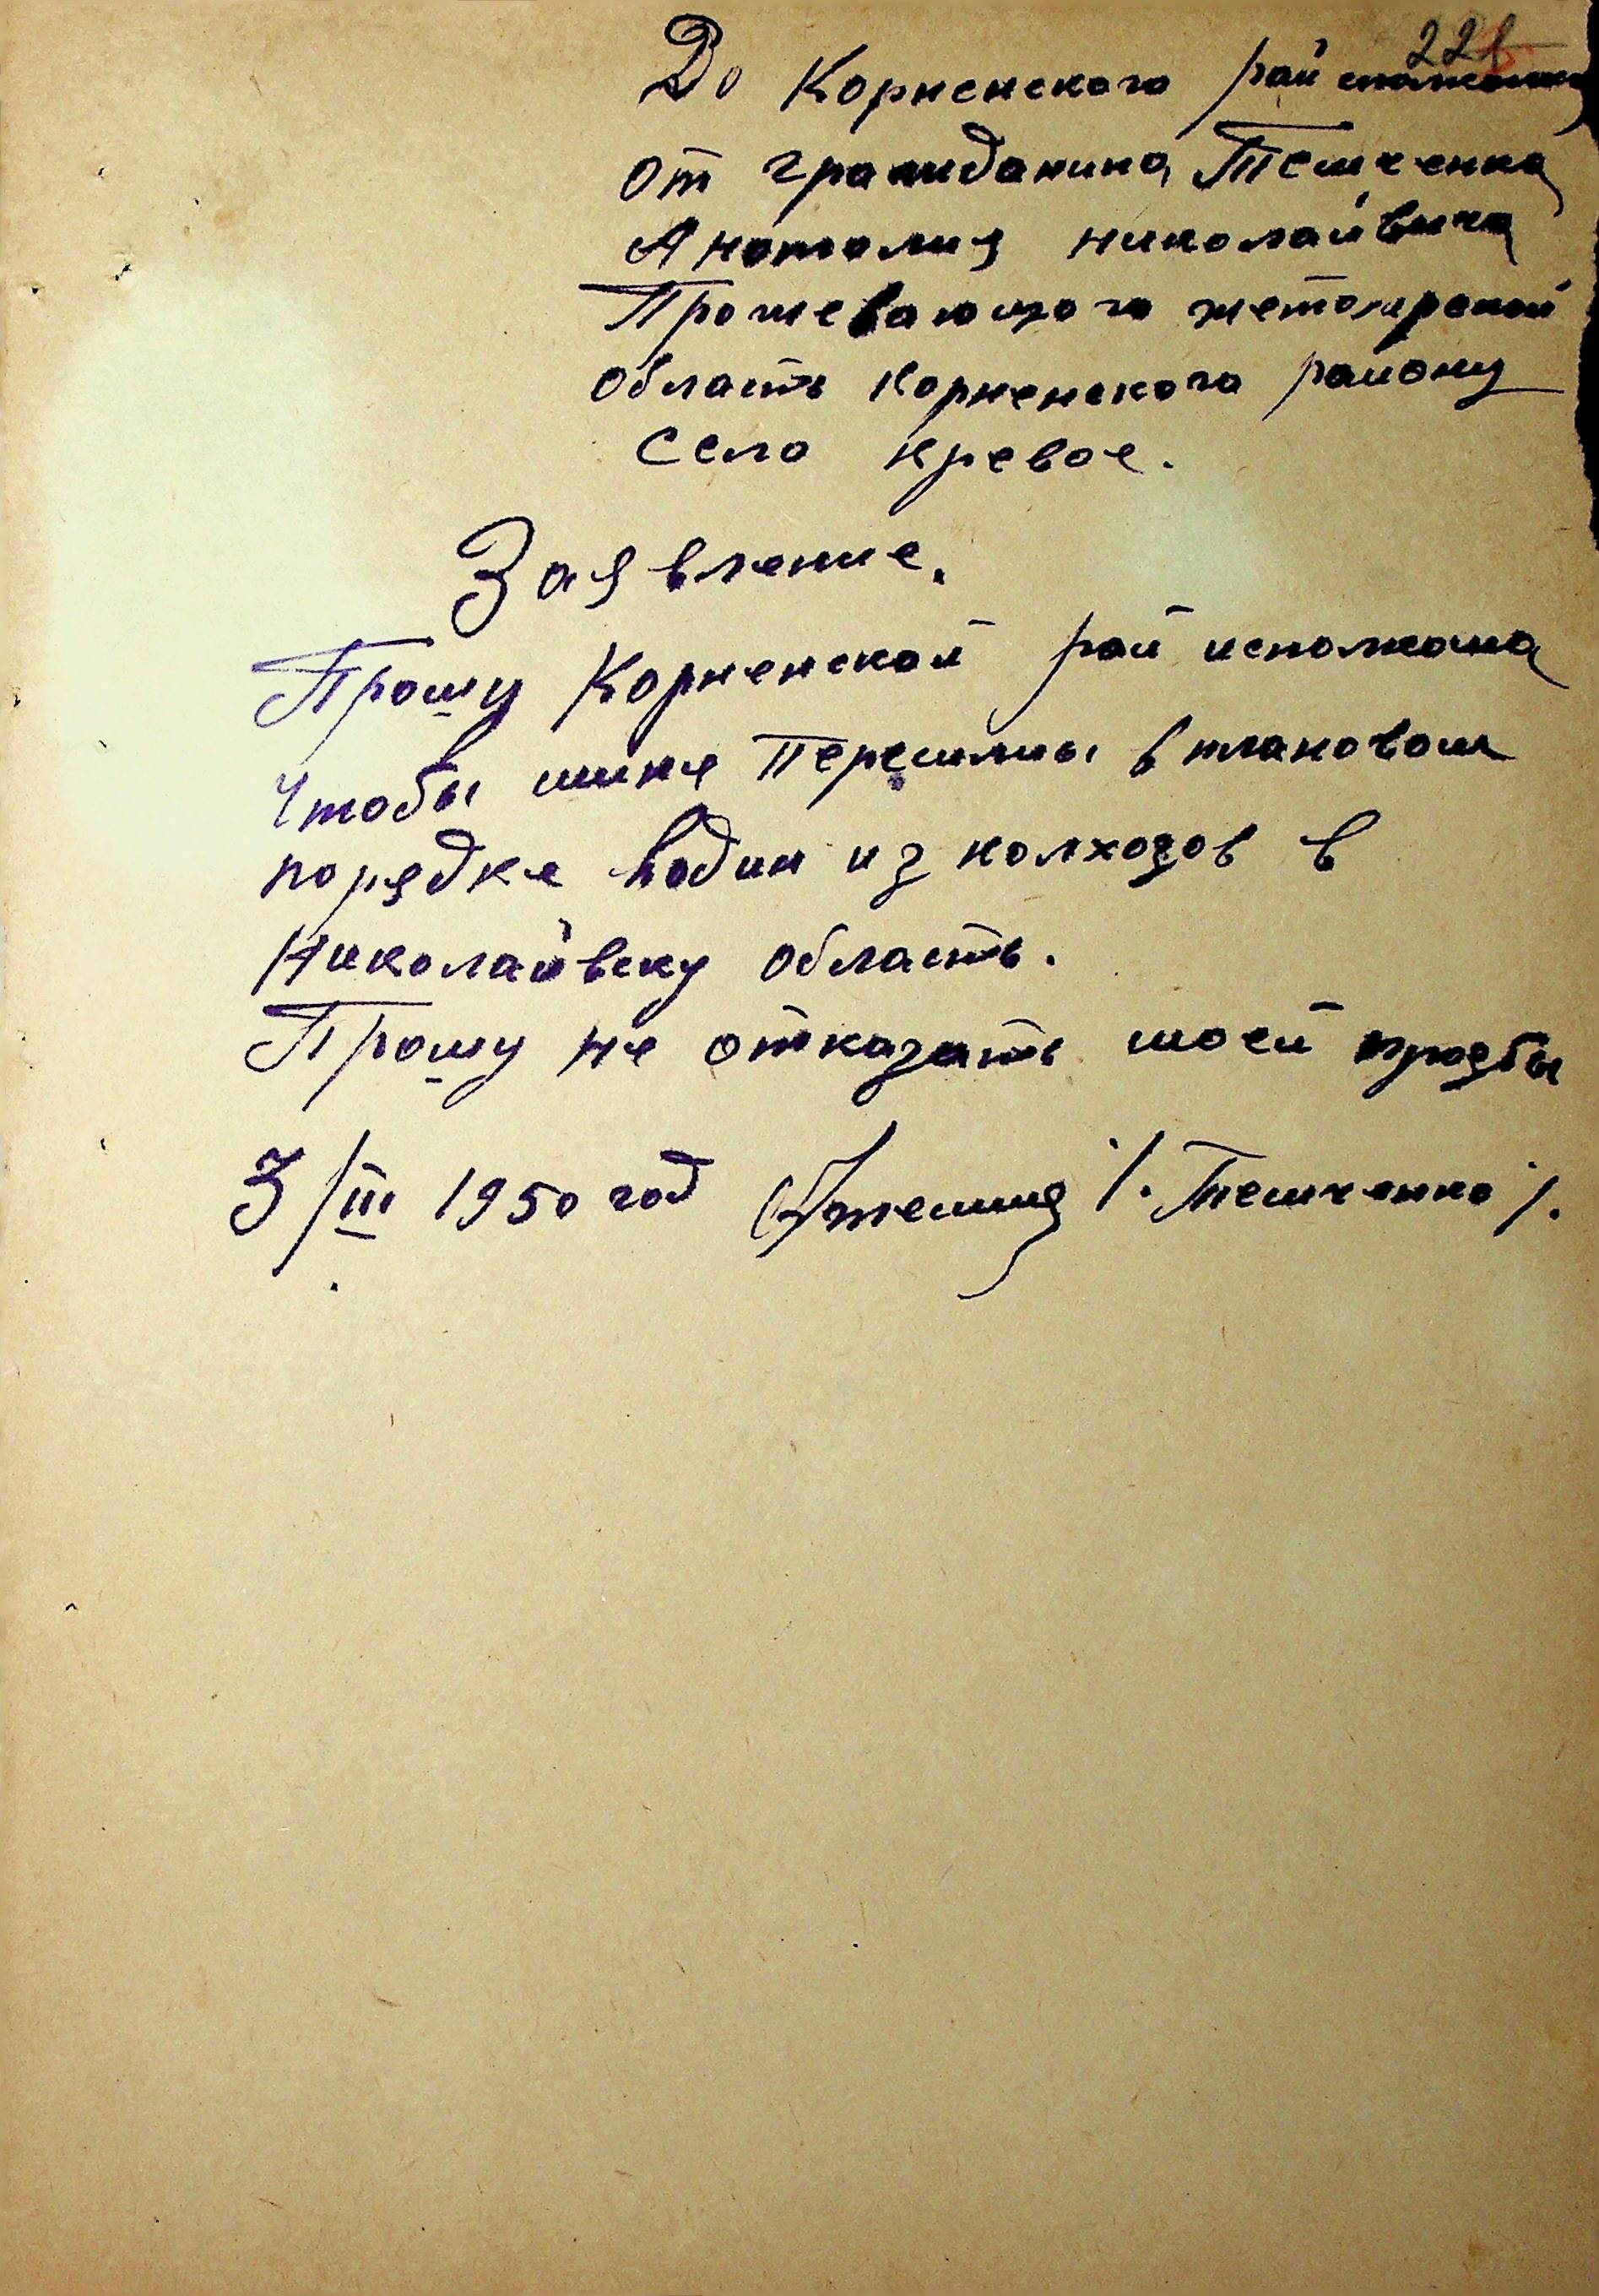 221
До Корненского рай сполкома
от гражданина Темченка
Анотолия николайвича
Прожевающого жетомрской
область корненского району
село кревое.
Заявление.
Прошу Корненской рай исполкома
чтобы миня Переслы в плановом
порядке водин из колхозов в
Николайвску область.
Прошу не отказать моей прозбы
3/III 1950 год /. Темченко /.